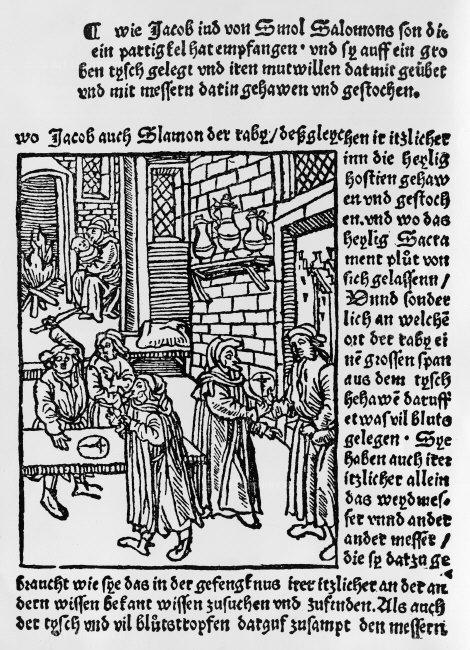 ¶ wie Jacob iud von Smol Salomons son die
ein partigkel hat empfangen · vnd sy auff ein gro
ben tysch gelegt vnd iren mutwillen datmit geübet
vnd mit messern darin gehawen vnd gestochen.
wo Jacob auch Slamon der raby / deßgleychen ir itzlicher
inn die heylig
hostien gehaw
en vnd gestoch
en. vnd wo das
heylig Sacra
ment plůt von
sich gelassenn /
Vnnd sonder
lich an welchē
ort der raby ei
nē grossen span
aus dem tysch
gehawē daruff
etwas vil bluts
gelegen · Sye
haben auch irer
itzlicher allein
das weydmes-
ser vnnd ander
ander messer /
die sy datzu ge
braucht wie sye das in der gefengknus irer itzlicher an der an
dern wissen bekant wissen zusuchen vnd zufinden. Als auch
der tysch vnd vil blůtstropfen darauf zusampt den messern